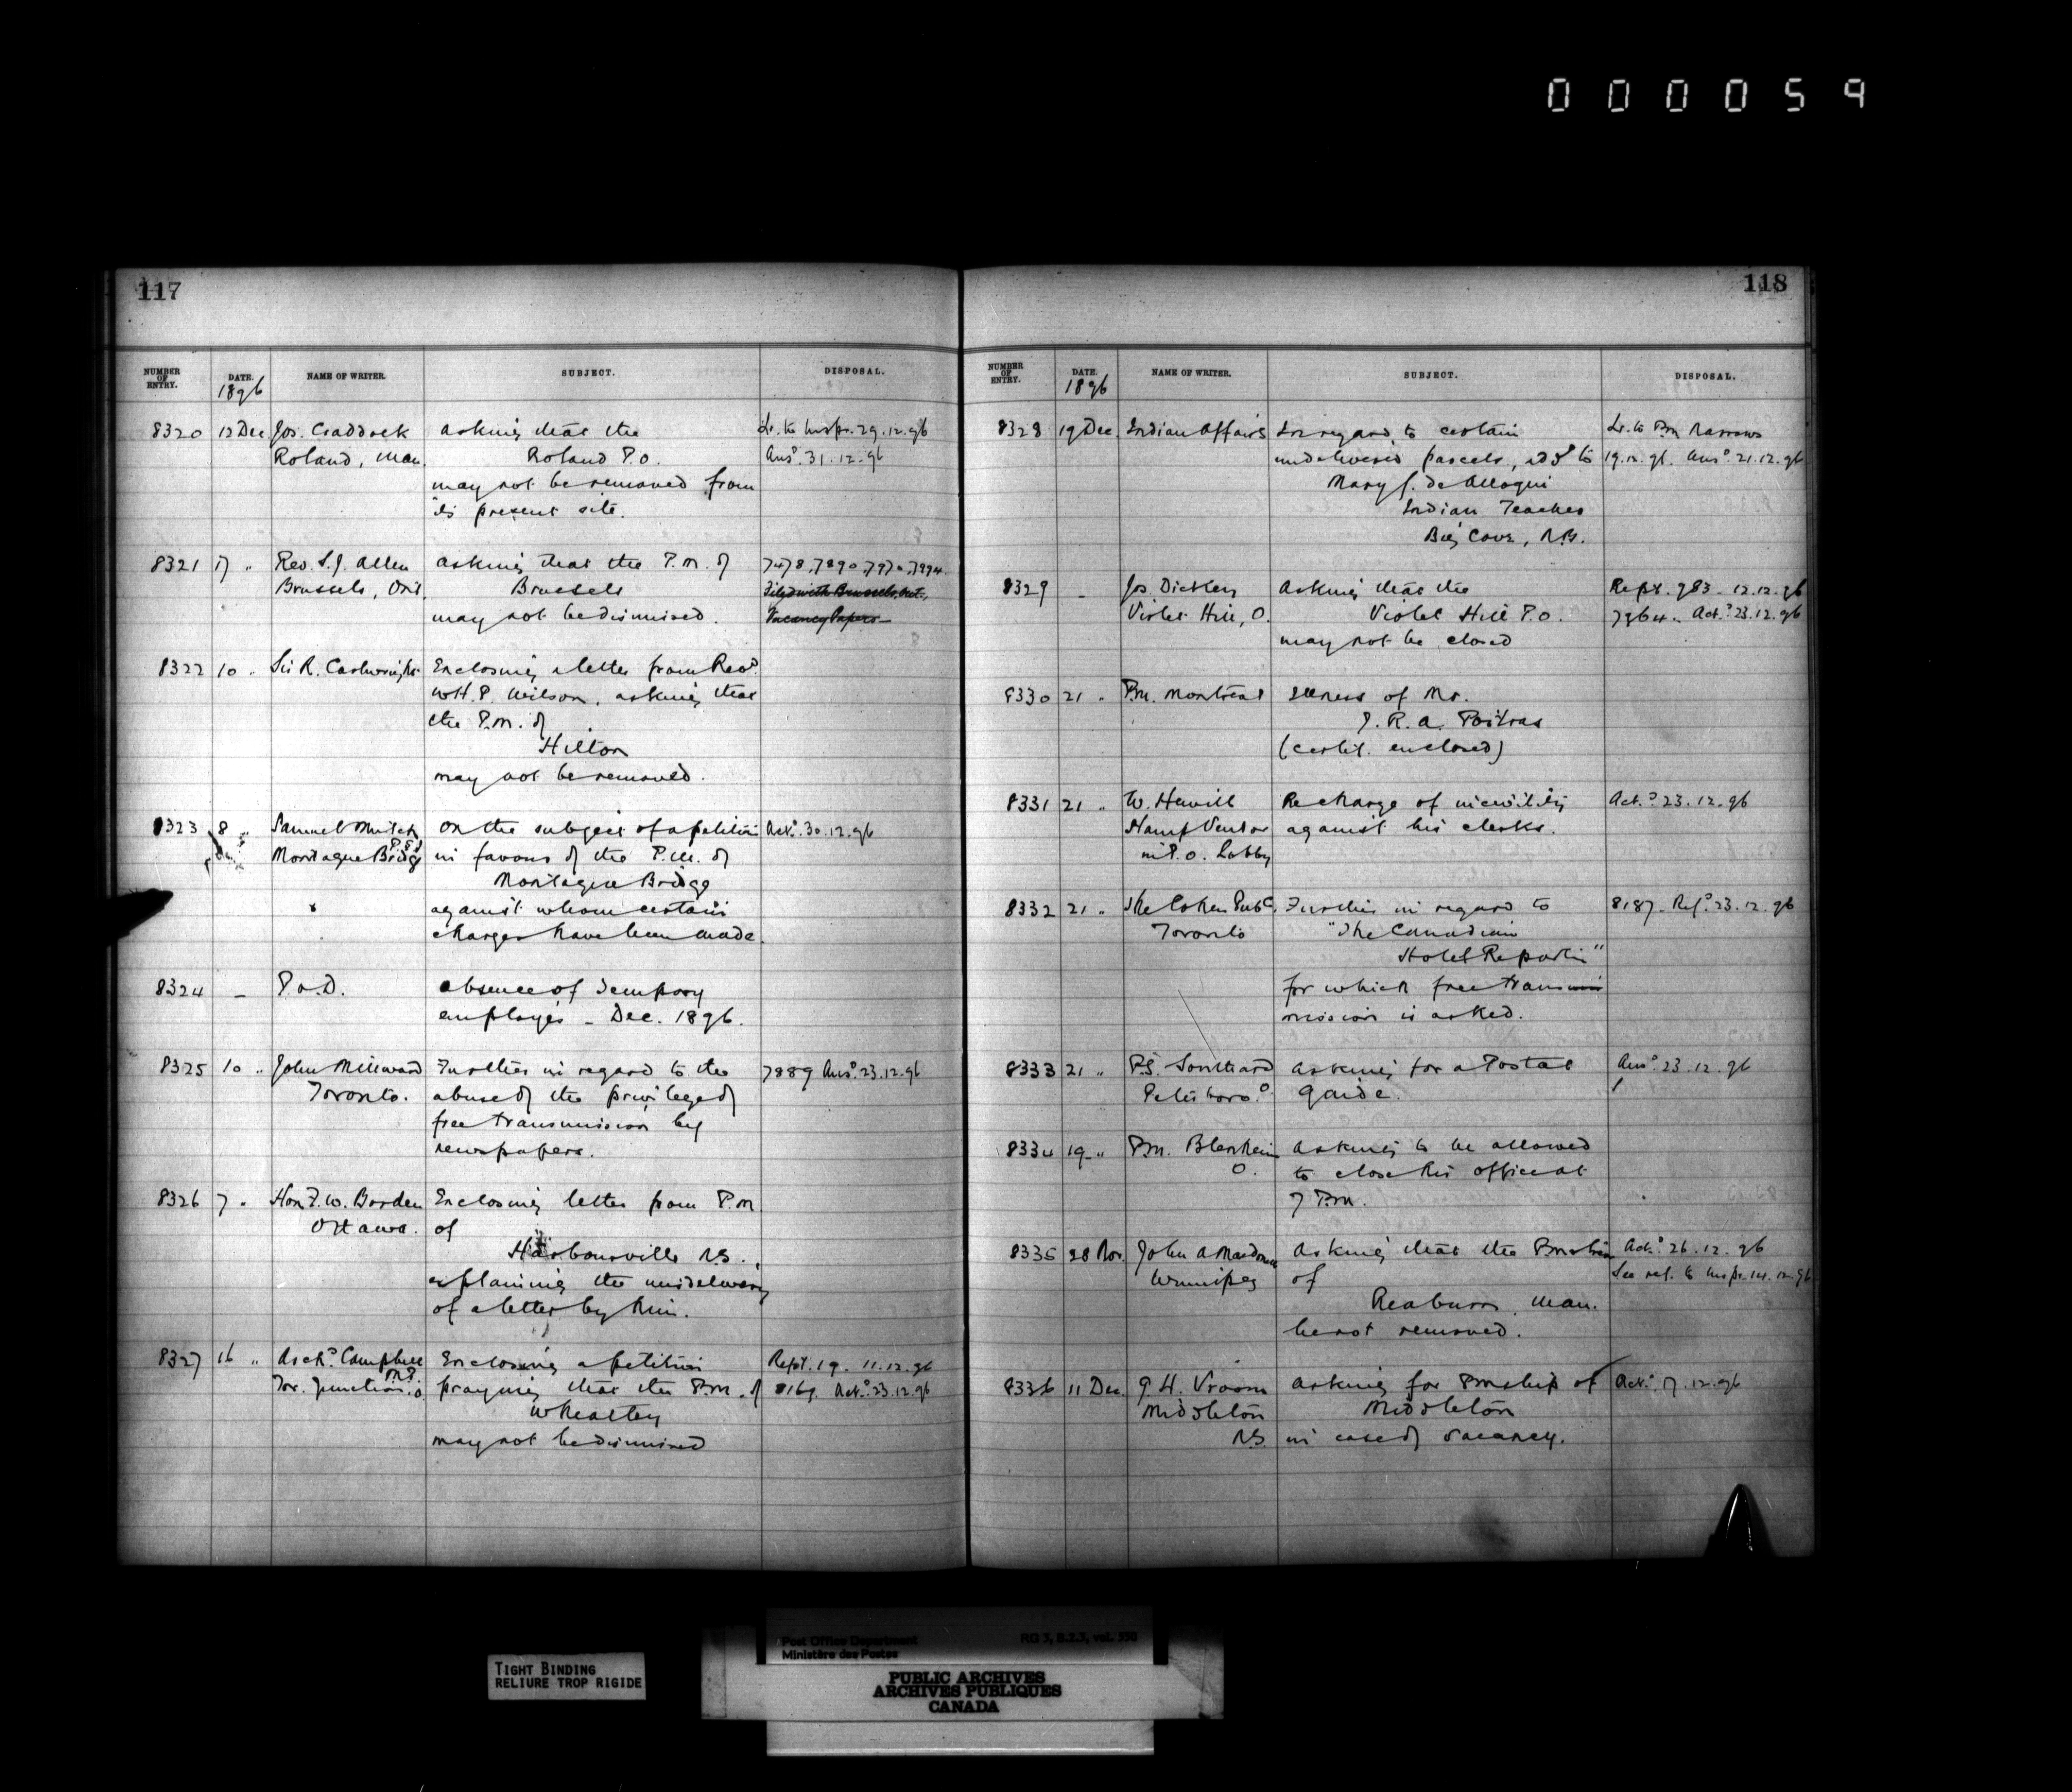 000059
117
NUMBER OF ENTRY. DATE. NAME OF WRITER. SUBJECT. DISPOSAL.
1896
8320 12 Dec Jos. Craddock asking that the Lr. to Inspr. 29.12.96
Roland, Man. Roland P.O. Ansd. 31.12.96
may not be removed from
its present site.
8321 17 " Rev. S.J. Allen asking that the P.M. of 7478, 7890, 7970, 7994
Brussels, Ont. Brussels Filed with Brussels, Ont.,
may not be dismissed. Vacancy Papers
8322 10 " Sir R. Cartwright Enclosing a letter from Revd.
W.H.P. Wilson, asking that
the P.M. of
Hilton
may not be removed.
8323 8 " Samuel on the subject of a petition Ackd. 30.12.96
Montague Bridge P.E.I. in favour of the P.M. of
Montague Bridge
against whom certain
charges have been made.
8324 – P.O.D. absence of tempory
employés – Dec. 1896.
8325 10 " John Millward Further in regard to the 7889 Ansd. 23.12.96
Toronto. abuse of the privilege of
free transmission by
newspapers.
8326 7 " Hon F.W. Borden Enclosing letter from P.M
Ottawa. of
Harbourville N.S.
explaining the misdelivery
of a letter by him.
8327 16 " Archd. Campbell Enclosing a petition Rept. 19. 11.12.96
M.P.
Tor. Junction. O. praying that the P.M. of 8169. Ackd. 23.12.96
Wheatley
may not be dismissed
118
NUMBER OF ENTRY. DATE. NAME OF WRITER. SUBJECT. DISPOSAL.
1896
8328 19 Dec. Indian Affairs In regard to certain Lr. to Pm Narrows
undelivered parcels, add to 19.12.96. Ansd. 21.12.96
Mary J.
Indian Teacher
Big Cove, N.B.
8329 – Jos. Dickey asking that the Rept. 983 - 12.12.96
Violet Hill, O. Violet Hill P.O. 7964. Ackd. 23.12.96
may not be closed
8330 21 " P.M. Montreal Illness of Mr.
J.R.A. Poitras
(certif. enclosed)
8331 21 " W. Hewitt Re charge of incivility Ackd. 23.12.96
Stamp Vendor against his clerks.
in P.O. Lobby
8332 21 " The Publ. Further in regard to 8187. Refd. 23.12.96
Toronto "The Canadian
Hotel Reporter"
for which free trans
mission is asked.
8333 21 " asking for a Postal Ansd. 23.12.96
Peterboro. O Guide.
8334 19 " P.M. Blenheim asking to be allowed
O. to close his office at
7 P.M.
8335 28 Nov. John A Macdonell asking that the Pmstress Ackd. 26.12.96
Winnipeg of See ref. to Inspr. 14.12.96
Reaburn, Man.
be not removed.
8336 11 Dec. G.H. Vroom asking for Pmship of Ackd. 17.12.96
Middleton Middleton
N.S. in case of vacancy.
TIGHT BINDING
RELIURE TROP RIGIDE
Post Office Department RG 3, B.2.3, vol. 350
Ministère des Postes
PUBLIC ARCHIVES
ARCHIVES PUBLIQUES
CANADA